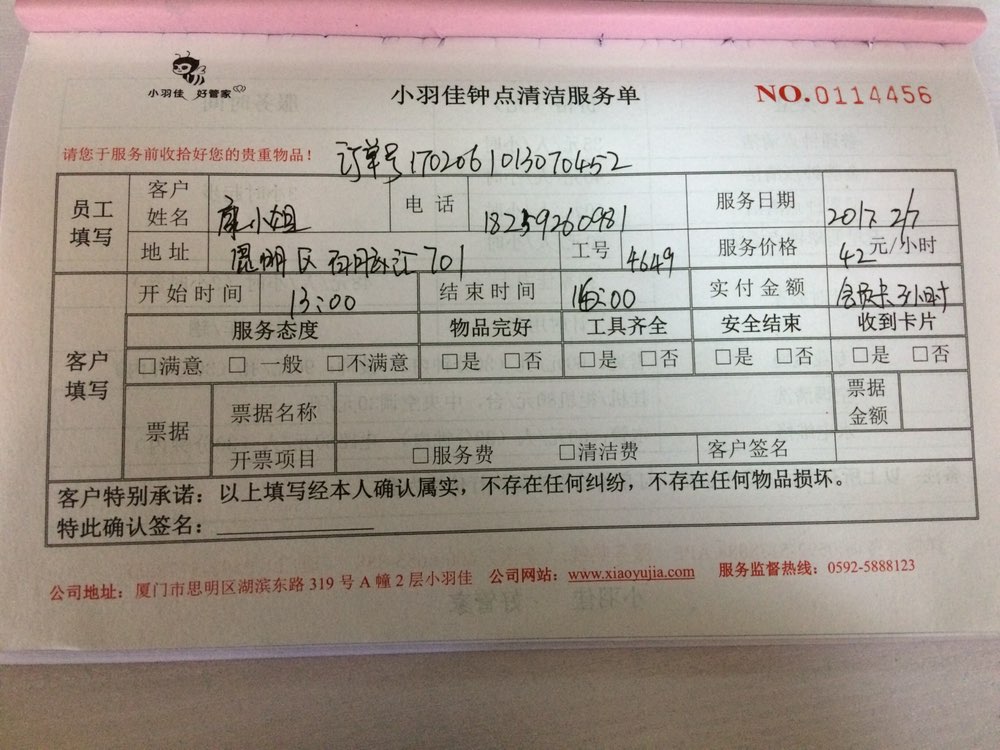 小羽佳 好管家
小羽佳钟点清洁服务单
NO.0114456
请您于服务前收拾好您的贵重物品！
订单号1702061013070452
员工填写 客户姓名 小姐 电话 18259260981 服务日期 2017. 2/7
地址 思明区 701 工号 4649 服务价格 42元/小时
开始时间 13:00 结束时间 16:00 实付金额 会员卡3小时
客户填写 服务态度 物品完好 工具齐全 安全结束 收到卡片
□满意 □一般 □不满意 □是 □否 □是 □否 □是 □否 □是 □否
票据 票据名称 票据金额
开票项目 □服务费 □清洁费 客户签名
客户特别承诺：以上填写经本人确认属实，不存在任何纠纷，不存在任何物品损坏。
特此确认签名：
公司地址：厦门市思明区湖滨东路 319 号 A 幢 2 层小羽佳 公司网站：www.xiaoyujia.com 服务监督热线：0592-5888123